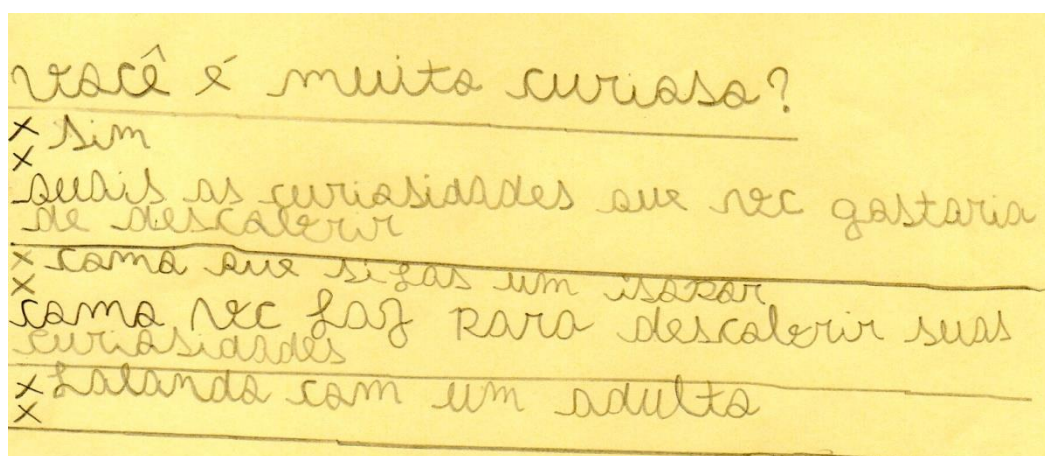 você é muito curiosa?
x sim
x
quais as curiosidades que vec gostaria
de descobrir
x como que si fas um isopor
x
como vec faz para descobrir suas
curiosidades
x falando com um adulto
x